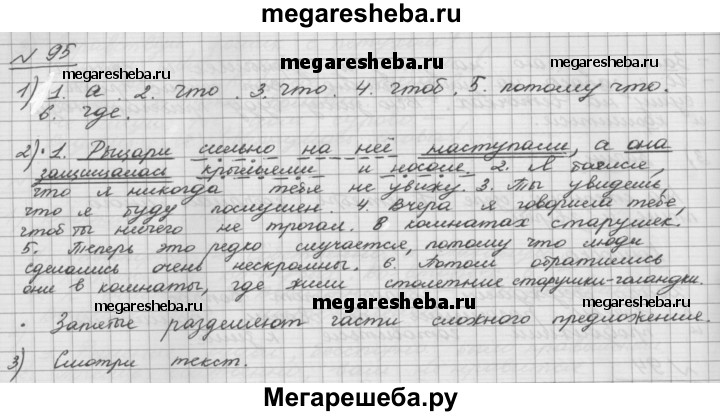 megaresheba.ru
№ 95
megaresheba.ru megaresheba.ru
1) 1. а. 2. что. 3. что. 4. чтоб. 5. потому что.
6. где.
2) • 1. Рыцари сильно на неё наступали, а она
защищалась крыльями и носом. 2. Я боялся,
что я никогда тебя не увижу. 3. Ты увидешь,
что я буду послушен. 4. Вчера я говорила тебе,
чтоб ты ничего не трогал. В комнатах старушек.
5. Теперь это редко случается, потому что люди
сделались очень нескромны. 6. Потом обратились
они в комнаты, где жили столетние старушки-галандки.
megaresheba.ru megaresheba.ru megaresheba.ru
• Запятые разделяют части сложного предложение.
3) Смотри текст.
megaresheba.ru megaresheba.ru
Мегарешеба.ру